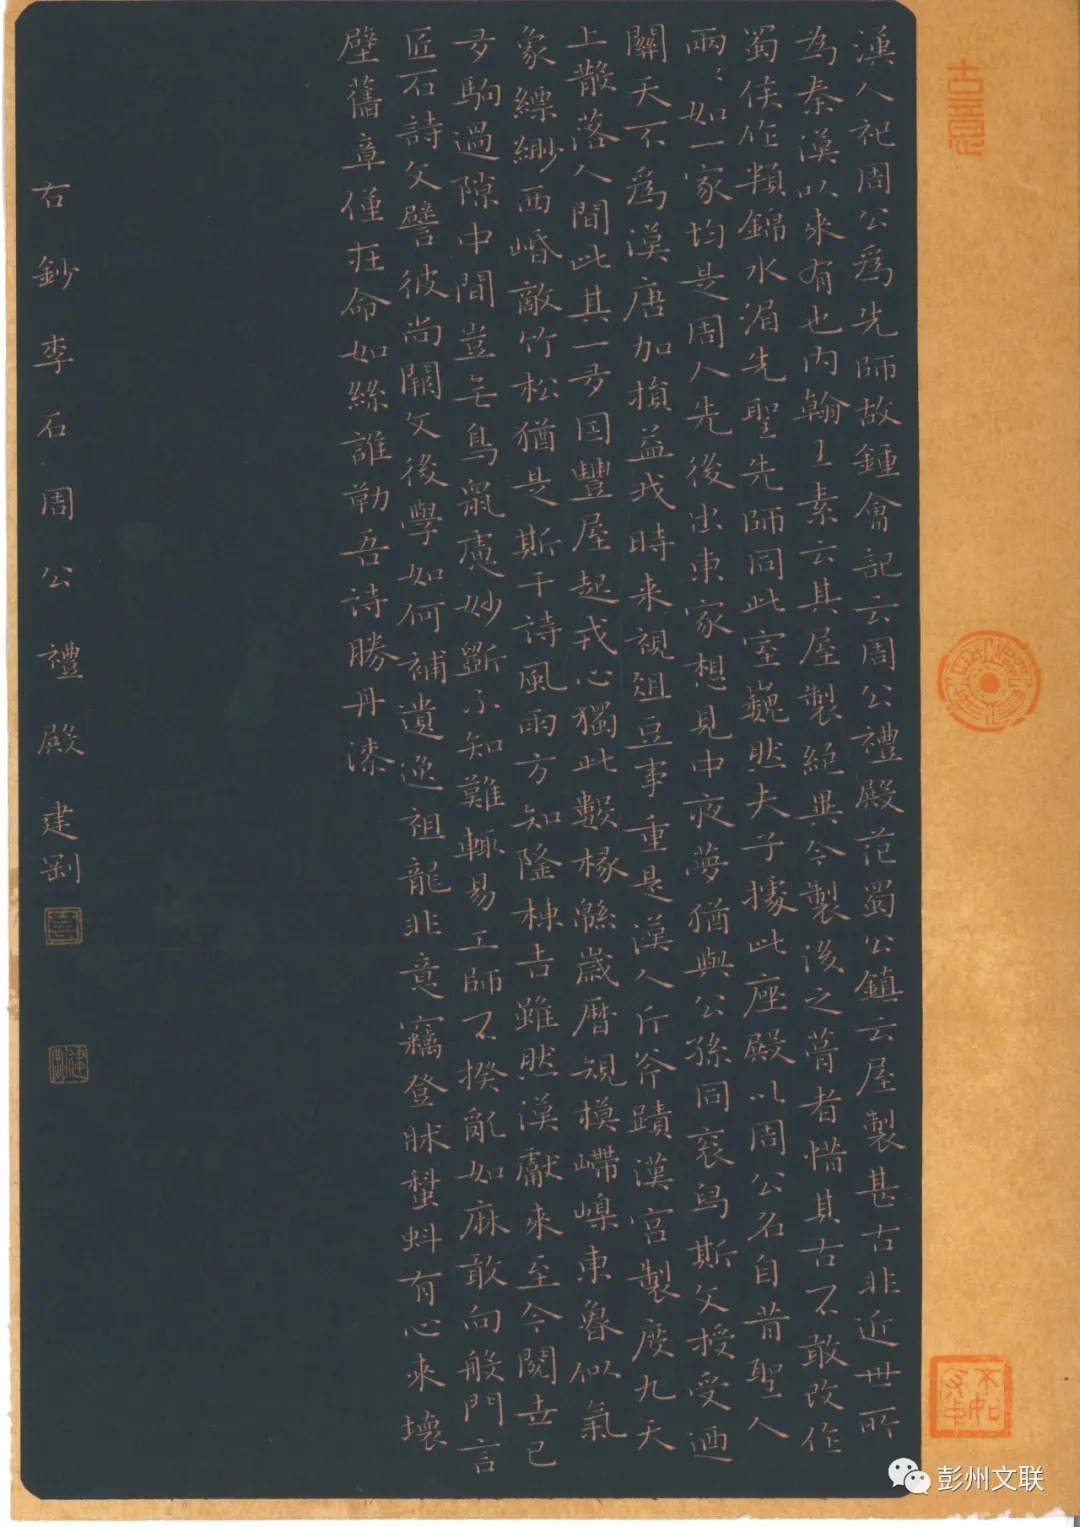 漢人祀周公爲先師故鍾會記云周公禮殿范蜀公鎮云屋製甚古非近世所
為秦漢以來有也内翰王素云其屋製絕異今製後之葺者惜其古不敢改作
蜀侯作頖錦水湄先聖先師同此室巍然夫子據此座殿以周公名自昔聖人
兩〻如一家均是周人先後出東家想見中夜夢猶與公孫同袞舄斯文授受迺
關天不爲漢唐加損益我時来視俎豆事重是漢人斤斧蹟漢宮製度九天
上散落人間此其一多国豐屋起戎心獨此數椽緜歲曆規模嵽嵲東魯似氣
象縹緲西崏敵竹松猶是斯干詩風雨方知隆棟吉雖然漢獻來至今閱世已
多駒過隙中間豈无鳥鼠慮妙斲不知難輒易工師不揆亂如麻敢向般門言
匠石詩文譬彼尚闕文後學如何補遺逸祖龍非意竊登牀蝌蚪有心来壞
壁舊章僅在命如絲誰勒吾詩勝丹漆
右鈔李石周公禮殿建剛
古意
建剛
彭州文联